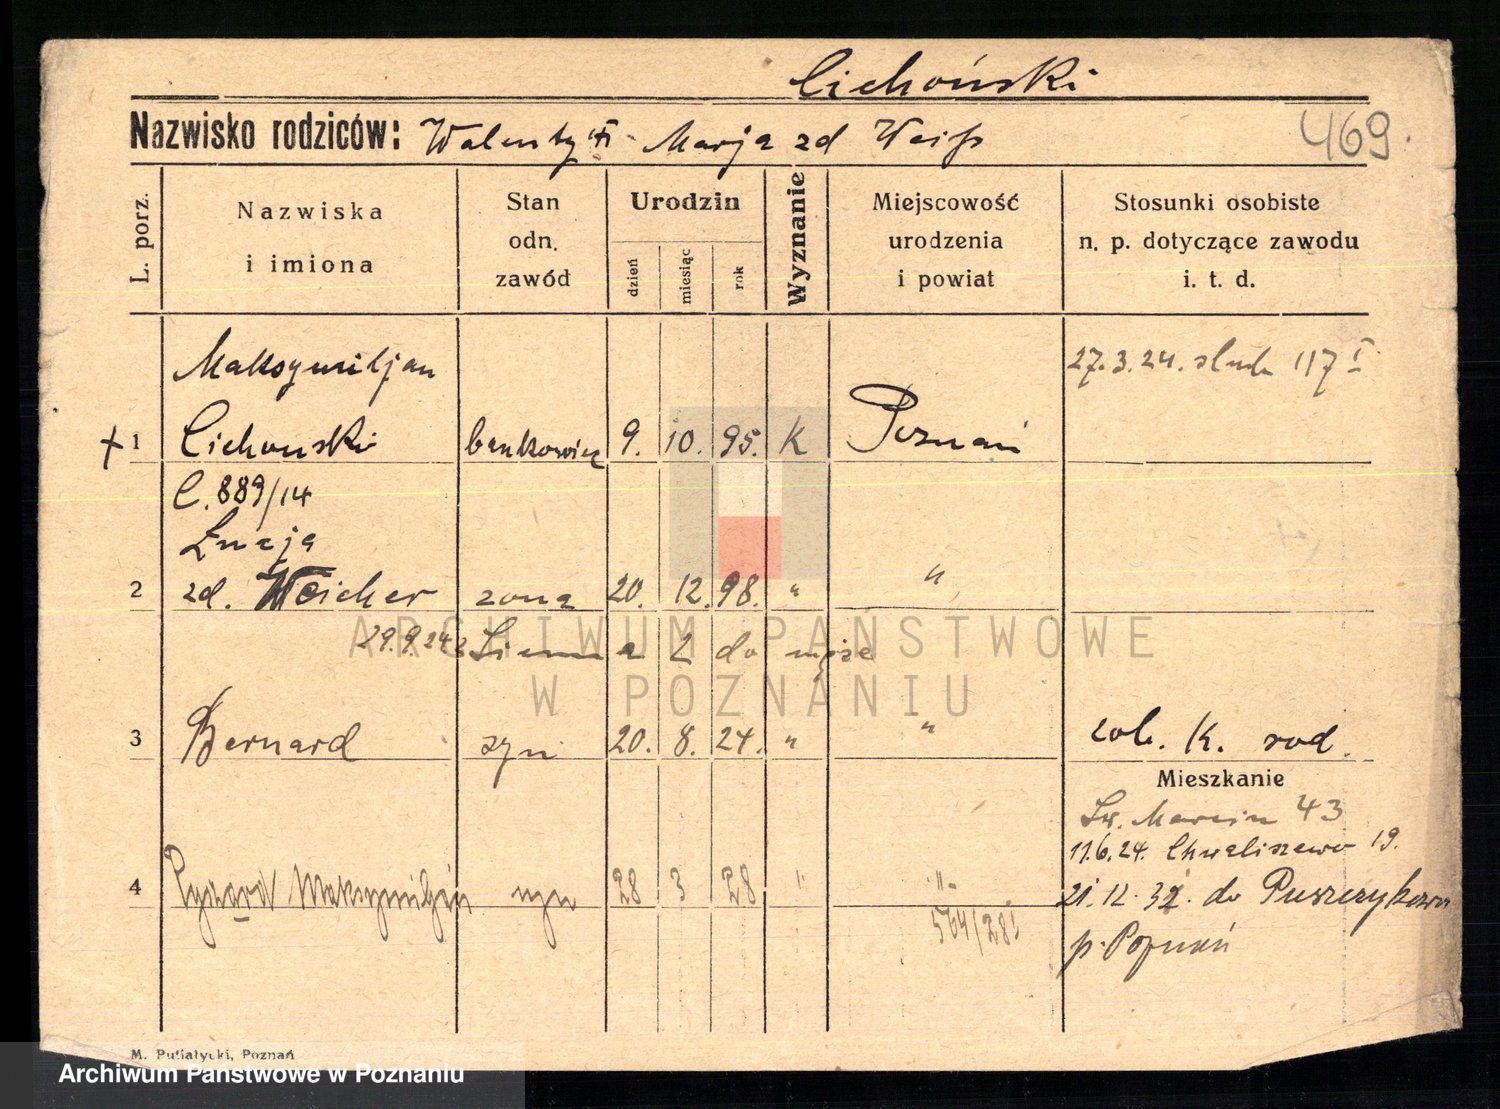 Cichoński
Nazwisko rodziców: Walenty Marja zd Weiss
469.
L. porz.
Nazwiska
i imiona
Stan
odn.
zawód
Urodzin
dzień
miesiąc
rok
Wyznanie
Miejscowość
urodzenia
i powiat
Stosunki osobiste
n. p. dotyczące zawodu
i. t. d.
Maksymiljan 27.3.24. ślub 117 I
+ 1 Cichonski bankowiec 9. 10. 95. K Poznań
C. 889/14
Łucja
2 zd. Weicher zona 20. 12. 98. " "
29.9.24 2 do męża
3 Bernard syn 20. 8. 24. " " zob. K. rod.
Mieszkanie
Św. Marcin 43
11.6.24. Chwaliszewo 19.
4 Ryszard Maksymiljan syn 28 3 28 " " 21.12.32. do Puszczykowa
564/28
p. Poznań
M. Putiatycki, Poznań
ARCHIWUM PAŃSTWOWE
W POZNANIU
Archiwum Państwowe w Poznaniu